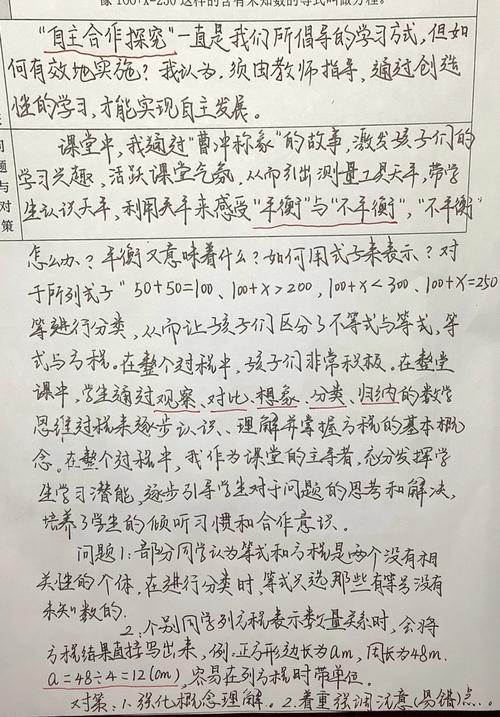 像100+x=250这样的含有未知数的等式叫做方程。
"自主合作探究"一直是我们所倡导的学习方式,但如
何有效地实施?我认为,须由教师指导,通过创造
性的学习,才能实现自主发展。
问
题
与
对
策
课堂中,我通过"曹冲称象"的故事,激发孩子们的
学习兴趣,活跃课堂气氛,从而引出测量工具天平,带学
生认识天平,利用天平来感受"平衡"与"不平衡","不平衡"
怎么办?平衡又意味着什么?如何用式子来表示?对
于所列式子"50+50=100、100+x>200,100+x<300、100+x=250
等进行分类,从而让孩子们区分了不等式与等式,等
式与方程。在整个过程中,孩子们非常积极。在整堂
课中,学生通过观察、对比、想象、分类、归纳的数学
思维过程来逐步认识、理解并掌握方程的基本概
念。在整个过程中,我作为课堂的主导者,充分发挥学
生学习潜能,逐步引导学生对于问题的思考和解决,
培养了学生的倾听习惯和合作意识。
问题1:部分同学认为等式和方程是两个没有相
关性的个体,在进行分类时,等式只选那些有等号没有
未知数的.
2.个别同学列方程表示数量关系时,会将
方程结果直接写出来,例:正方形边长为am,周长为48m.
a=48÷4=12(m),容易在列方程时带单位.
对策:1.强化概念理解。2.着重强调注意(易错)点...